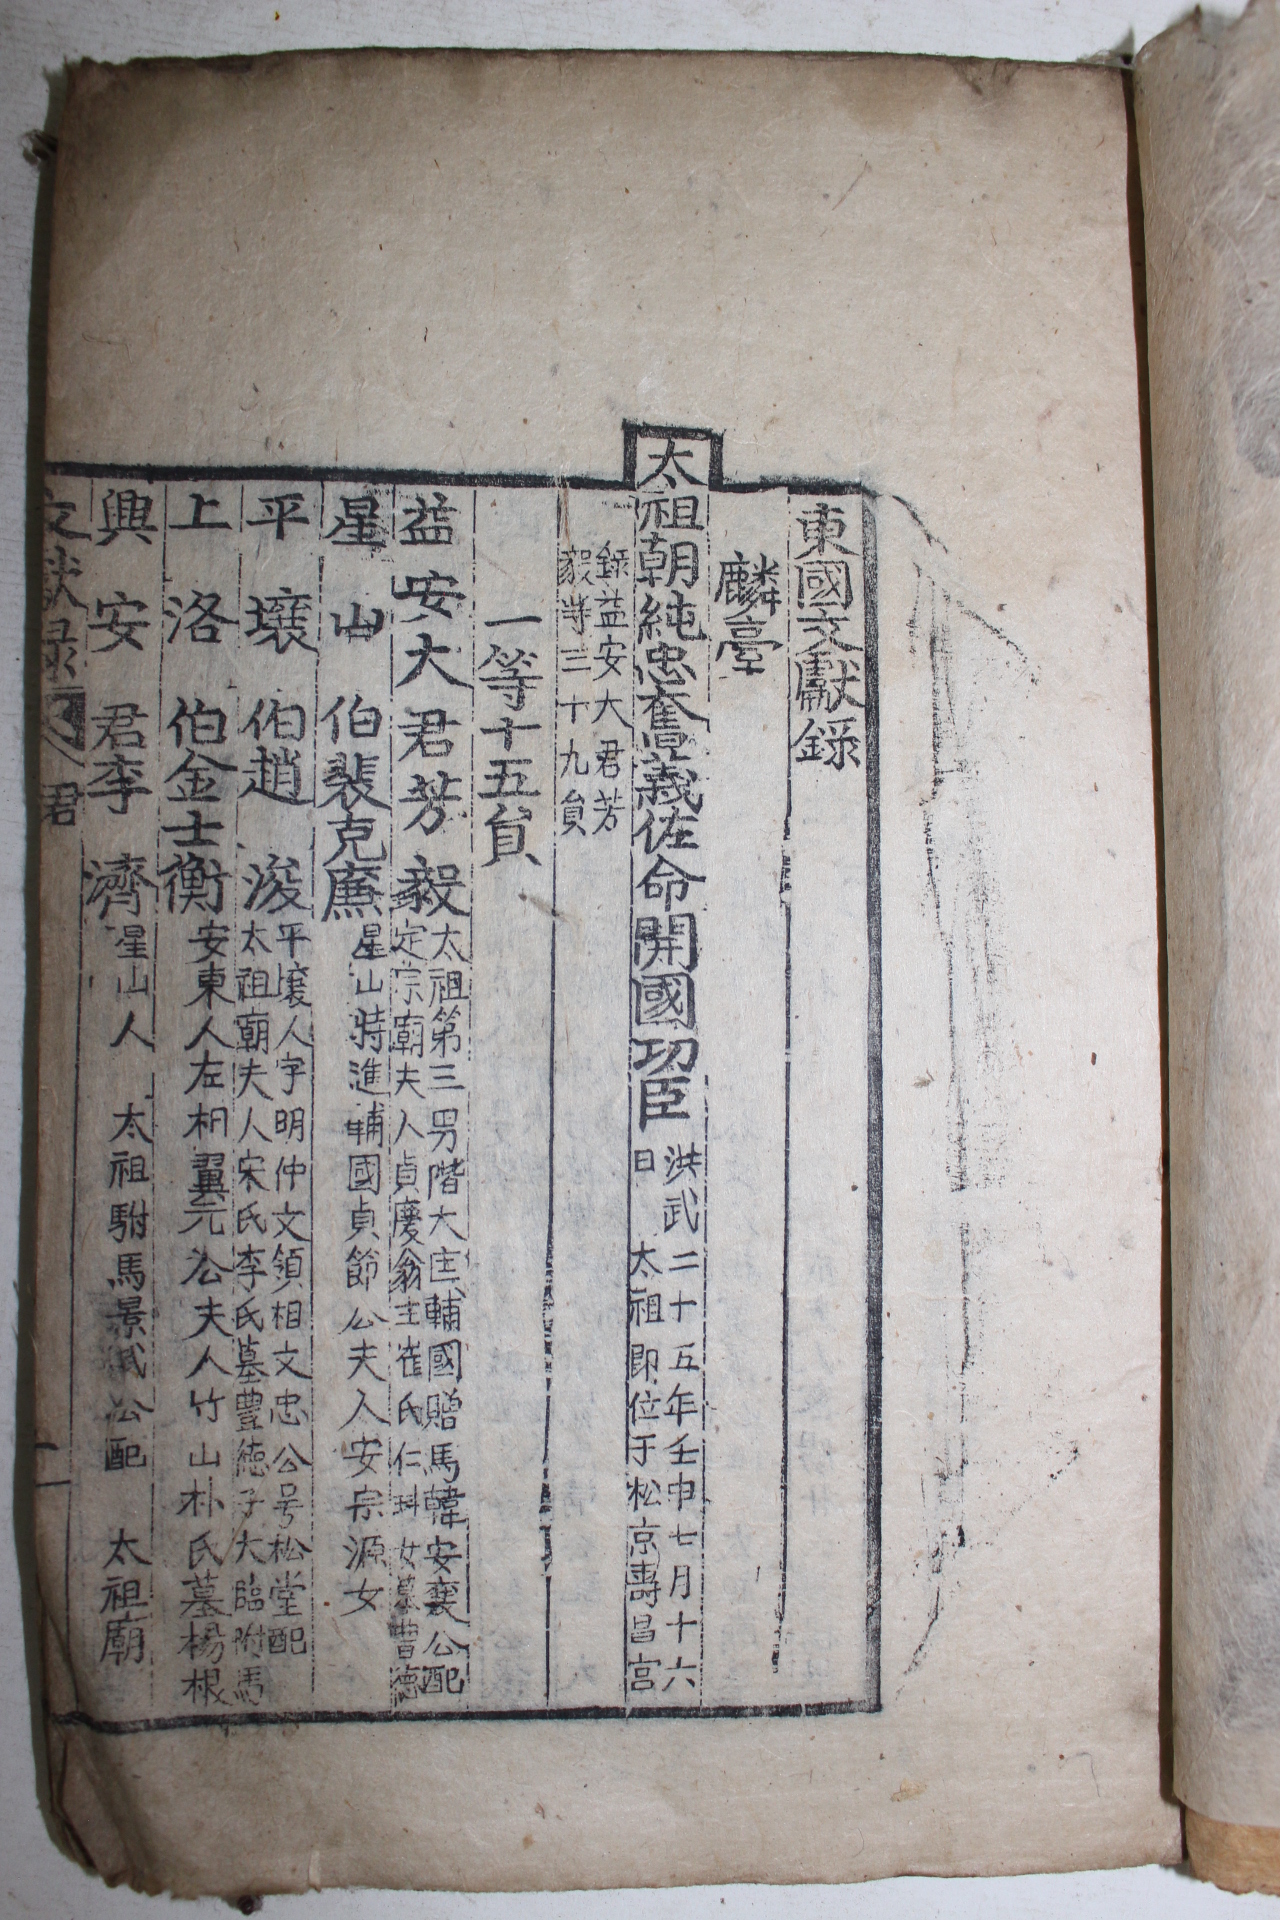 東國文獻錄
麟臺
太祖朝純忠奮義佐命開國功臣
洪武二十五年壬申七月十六
日 太祖卽位于松京壽昌宮
錄益安大君芳
毅等三十九員
一等十五員
益安大君芳毅
太祖第三男階大匡輔國贈馬韓安襄公配
定宗廟夫人貞慶翁主崔氏仁科女墓豊德
星山伯裴克廉
星山特進輔國貞節公夫人安宗源女
平壤伯趙浚
平壤人字明仲文領相文忠公号松堂配
太祖廟夫人宋氏李氏墓豊德子大臨附馬
上洛伯金士衡
安東人左相翼元公夫人竹山朴氏墓楊根
興安君李濟
星山人 太祖駙馬景武公配 太祖廟
文獻錄 君 一